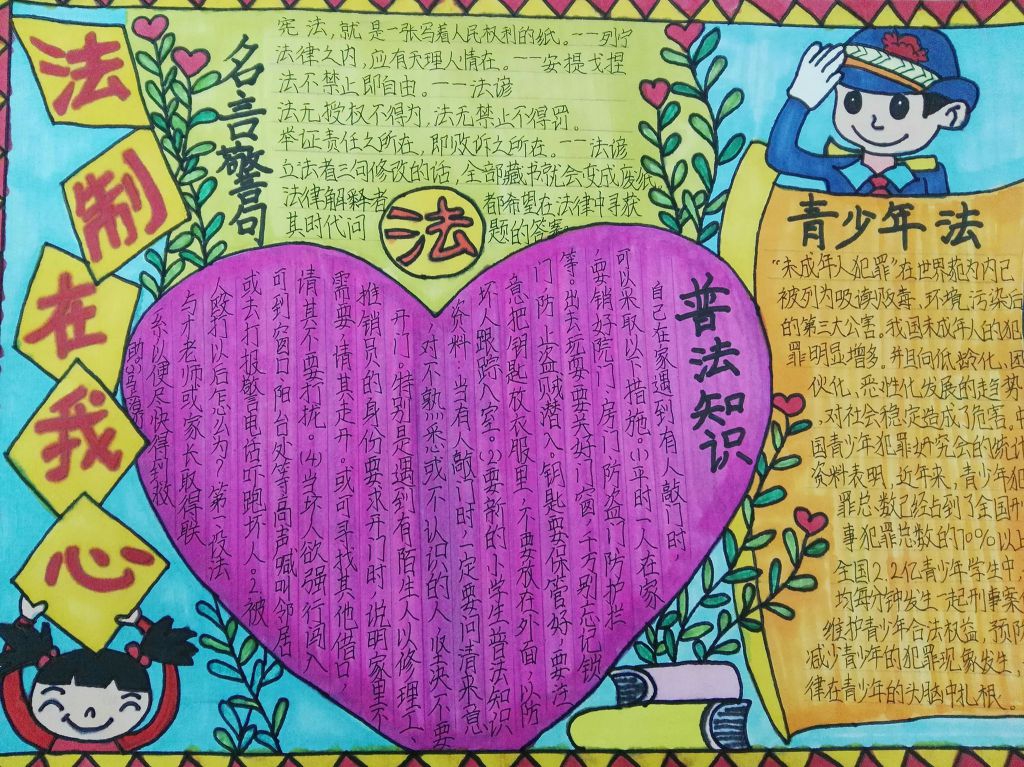 法
制
在
我
心
名言警句
宪法,就是一张写着人民权利的纸。——列宁
法律之内,应有天理人情在。——安提戈捏
法不禁止即自由。——法谚
法无授权不得为,法无禁止不得罚。
举证责任之所在,即败诉之所在。——法谚
立法者三句修改的话,全部藏书就会变成废纸
法律解释者都希望在法律中寻获
其时代问题的答案
法
普法知识
自己在家遇到有人敲门时,
可以采取以下措施。(1)平时一人在家
要锁好院门、房门、防盗门防护栏
等。出去玩耍要关好门窗,千万别忘记锁
门,防止盗贼潜入。钥匙要保管好,要注
意把钥匙放衣服里,不要放在外面,以防
坏人跟踪入室。(2)要新的小学生普法知识
资料:当有人敲门时,一定要问清来意
对不熟悉或不认识的人,坚决不要
开门。特别是遇到有陌生人以修理工、
推销员的身份要求开门时,说明家里不
需要,情其走开。或可寻找其他借口,
请其不要打扰。(4)当坏人欲强行闯入
可到窗口、阳台处等高声喊叫邻居
或去打报警电话吓跑坏人。2.被
人殴打以后怎么为?第一设法
与才老师或家长取得联
系以便尽快得到救
助
青少年法
“未成年人犯罪”在世界范为内已
被列为吸毒贩毒、环境污染后
的第三大公害。我国未成年人的犯
罪明显增多。并且向低龄化、团
伙化、恶性化发展的趋势
对社会稳定造成了危害。中
国青少年犯罪研究会的统计
资料表明,近年来,青少年犯
罪总数已经占到了全国刑
事犯罪总数的70%以上
全国2.2亿青少年学生中,
均每分钟发生一起刑事案
维护青少年合法权益,预防
减少青少年的犯罪现象发生,
律在青少年的头脑中扎根。